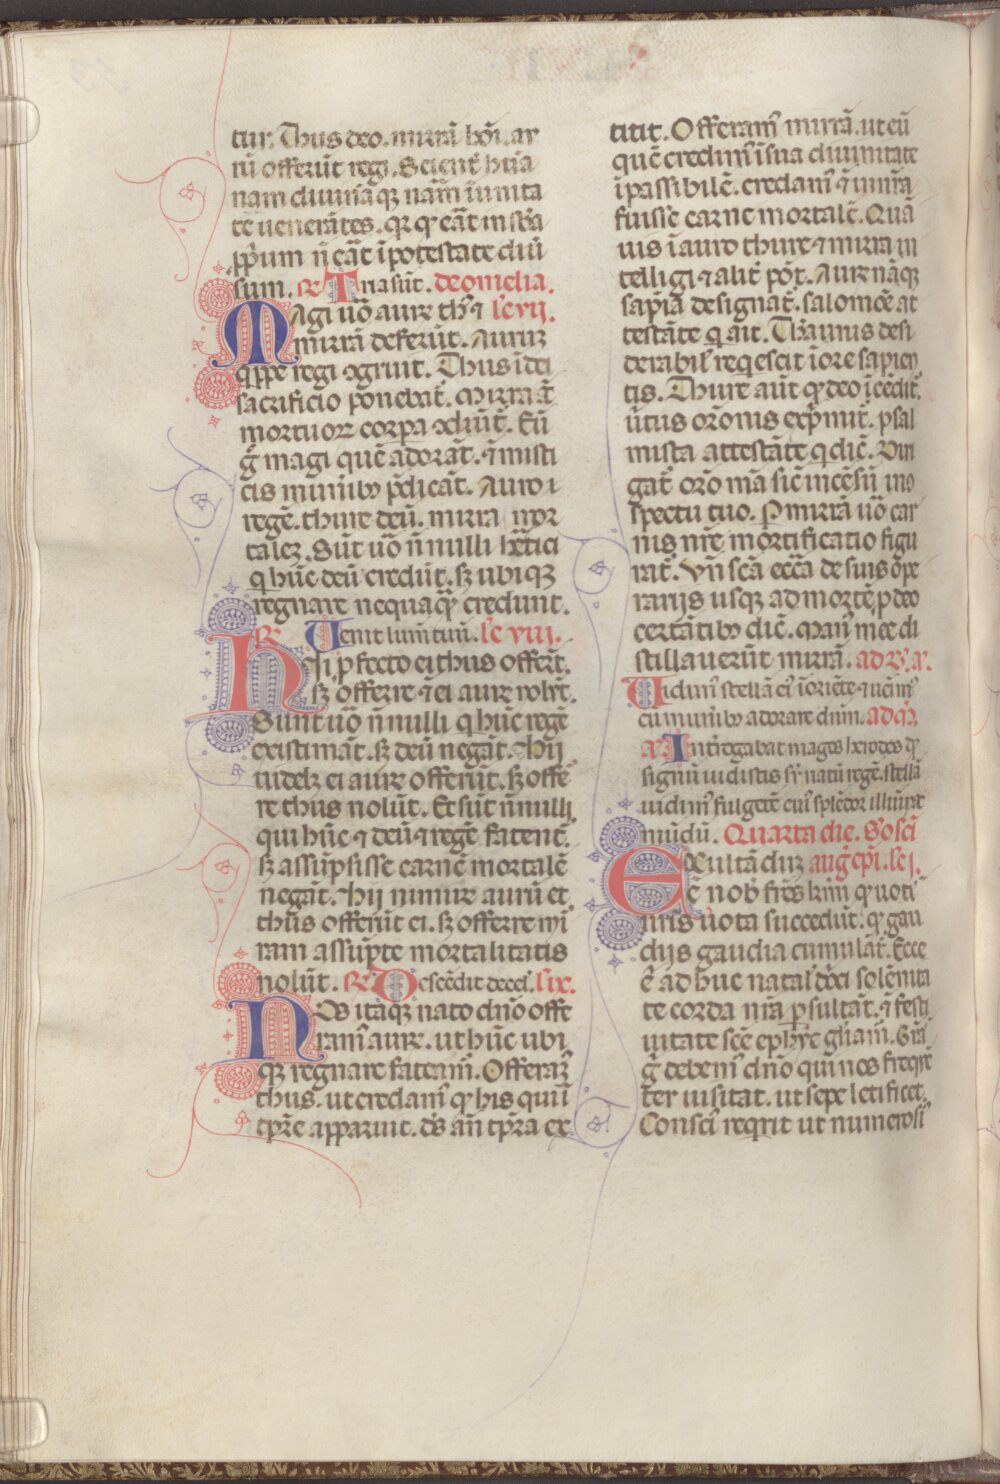 tur. Thus deo. mirrā hōi. au
rū offerūt regi. Scientes hūa
nam diuināqꝫ nām ī unita
te uenerātes. qꝛ q̄ erāt in sē
pp̄ium nō erāt ī potestate diui
sum. R Tria sūt. de omelia.
Magi uō aurū thꝰ ⁊ le vii.
mirrā deferūt. Aurū
q̄ppe regi ꝯgruit. Thus ī dei
sacrificio ponebat̄. Mirra aūt
mortuoꝝ corpa ꝯdiūt̄. Eū
g̊ magi quē adorāt. ēt misti
cis munibꝰ p̄dicāt. Auro ⁊
regē. thure deū. mirra mor
talez. Sūt uō nnulli hētici
q̇ hūc deū credūt. sꝫ ubiqꝫ
regnare nequaqꝫ credunt.
R Uenit lumē tuū. le viii.
Hsi ꝓfecto ei thus offerūt.
sꝫ offerre ⁊ ei aurū nolūt.
Sunt uō nnulli q̇ hūc regē
existimāt. sꝫ deū negāt. Hij
uidelꝫ ei aurū offerūt. sꝫ offe
re thus nolūt. Et sūt nnulli
qui hūc ⁊ deū ⁊ regē fatent̄.
sꝫ assūpsisse carnē mortalē
negāt. Hij nimirū aurū et
thus offerūt ei. sꝫ offerre mi
ram assūpte mortalitatis
nolūt. R Descēdit decel. l ix.
Nos itaqꝫ nato dn̄o offe
ramꝰ aurū. ut hūc ubi
qꝫ regnare fateamꝰ. Offeramꝰ
thus. ut credamꝰ qꝫ his qui ī
tp̄re apparuit. dꝰ an̄ tp̄ra ex
titit. Offeramꝰ mirrā. ut eū
quē credimꝰ ī sua diuinitate
īpassibilē. credamꝰ ⁊ ī nr̄a
fuisse carne mortalē. Quā
uis ī auro thure ⁊ mirra in
telligi ⁊ alit̄ pōt. Auro nāqꝫ
sap̄ia designat̄. salomōe at
testāte q̇ ait. Thaurus desi
derabil̓ reqescit ī ore sapien
tis. Thure aūt qꝫ deo īcēdit̄.
ūtus orōnis exp̄mit̄. psal
mista attestāte q̇ dic̄. Diri
gat̄ orō mā sic̄ incēsū in ꝯ
spectu tuo. P mirrā uō car
nis nr̄e mortificatio figu
rat̄. Vn̄ scā ecc̄a de suis ope
rarijs usqꝫ ad mortē p deo
certātibꝰ dic̄. Manꝰ mee di
stillauerūt mirrā. ad R. a.
Uidimꝰ stellā eiꝰ ī oriēte ⁊ uēimꝰ
cū munibꝰ adorare dnm. ad Q.
a. Int̄rogabat magos herodes q̄
signū uidistis sr̄ natū regē. stellā
uidimꝰ fulgētē cuiꝰ splēdor illūīat
mūdū. Quarta die. S'osci
Exultā duꝫ aug̓. ep̄i. le i.
ē nob̄ fr̄es kmi q̄ uoti
nris uota succedūt. q̄ gau
diis gaudia cumulāt̄. Ecce
ē adhuc natal̓ dn̄i solēnita
te corda nr̄a p̄sultāt. ⁊ festi
uitate scē ephyē gliamꝰ. Grā
g̊ debemꝰ dn̄o qui nos freqn̄
ter uisitat. ut sepe letificet.
Consciꝰ reqrit ut numerosi